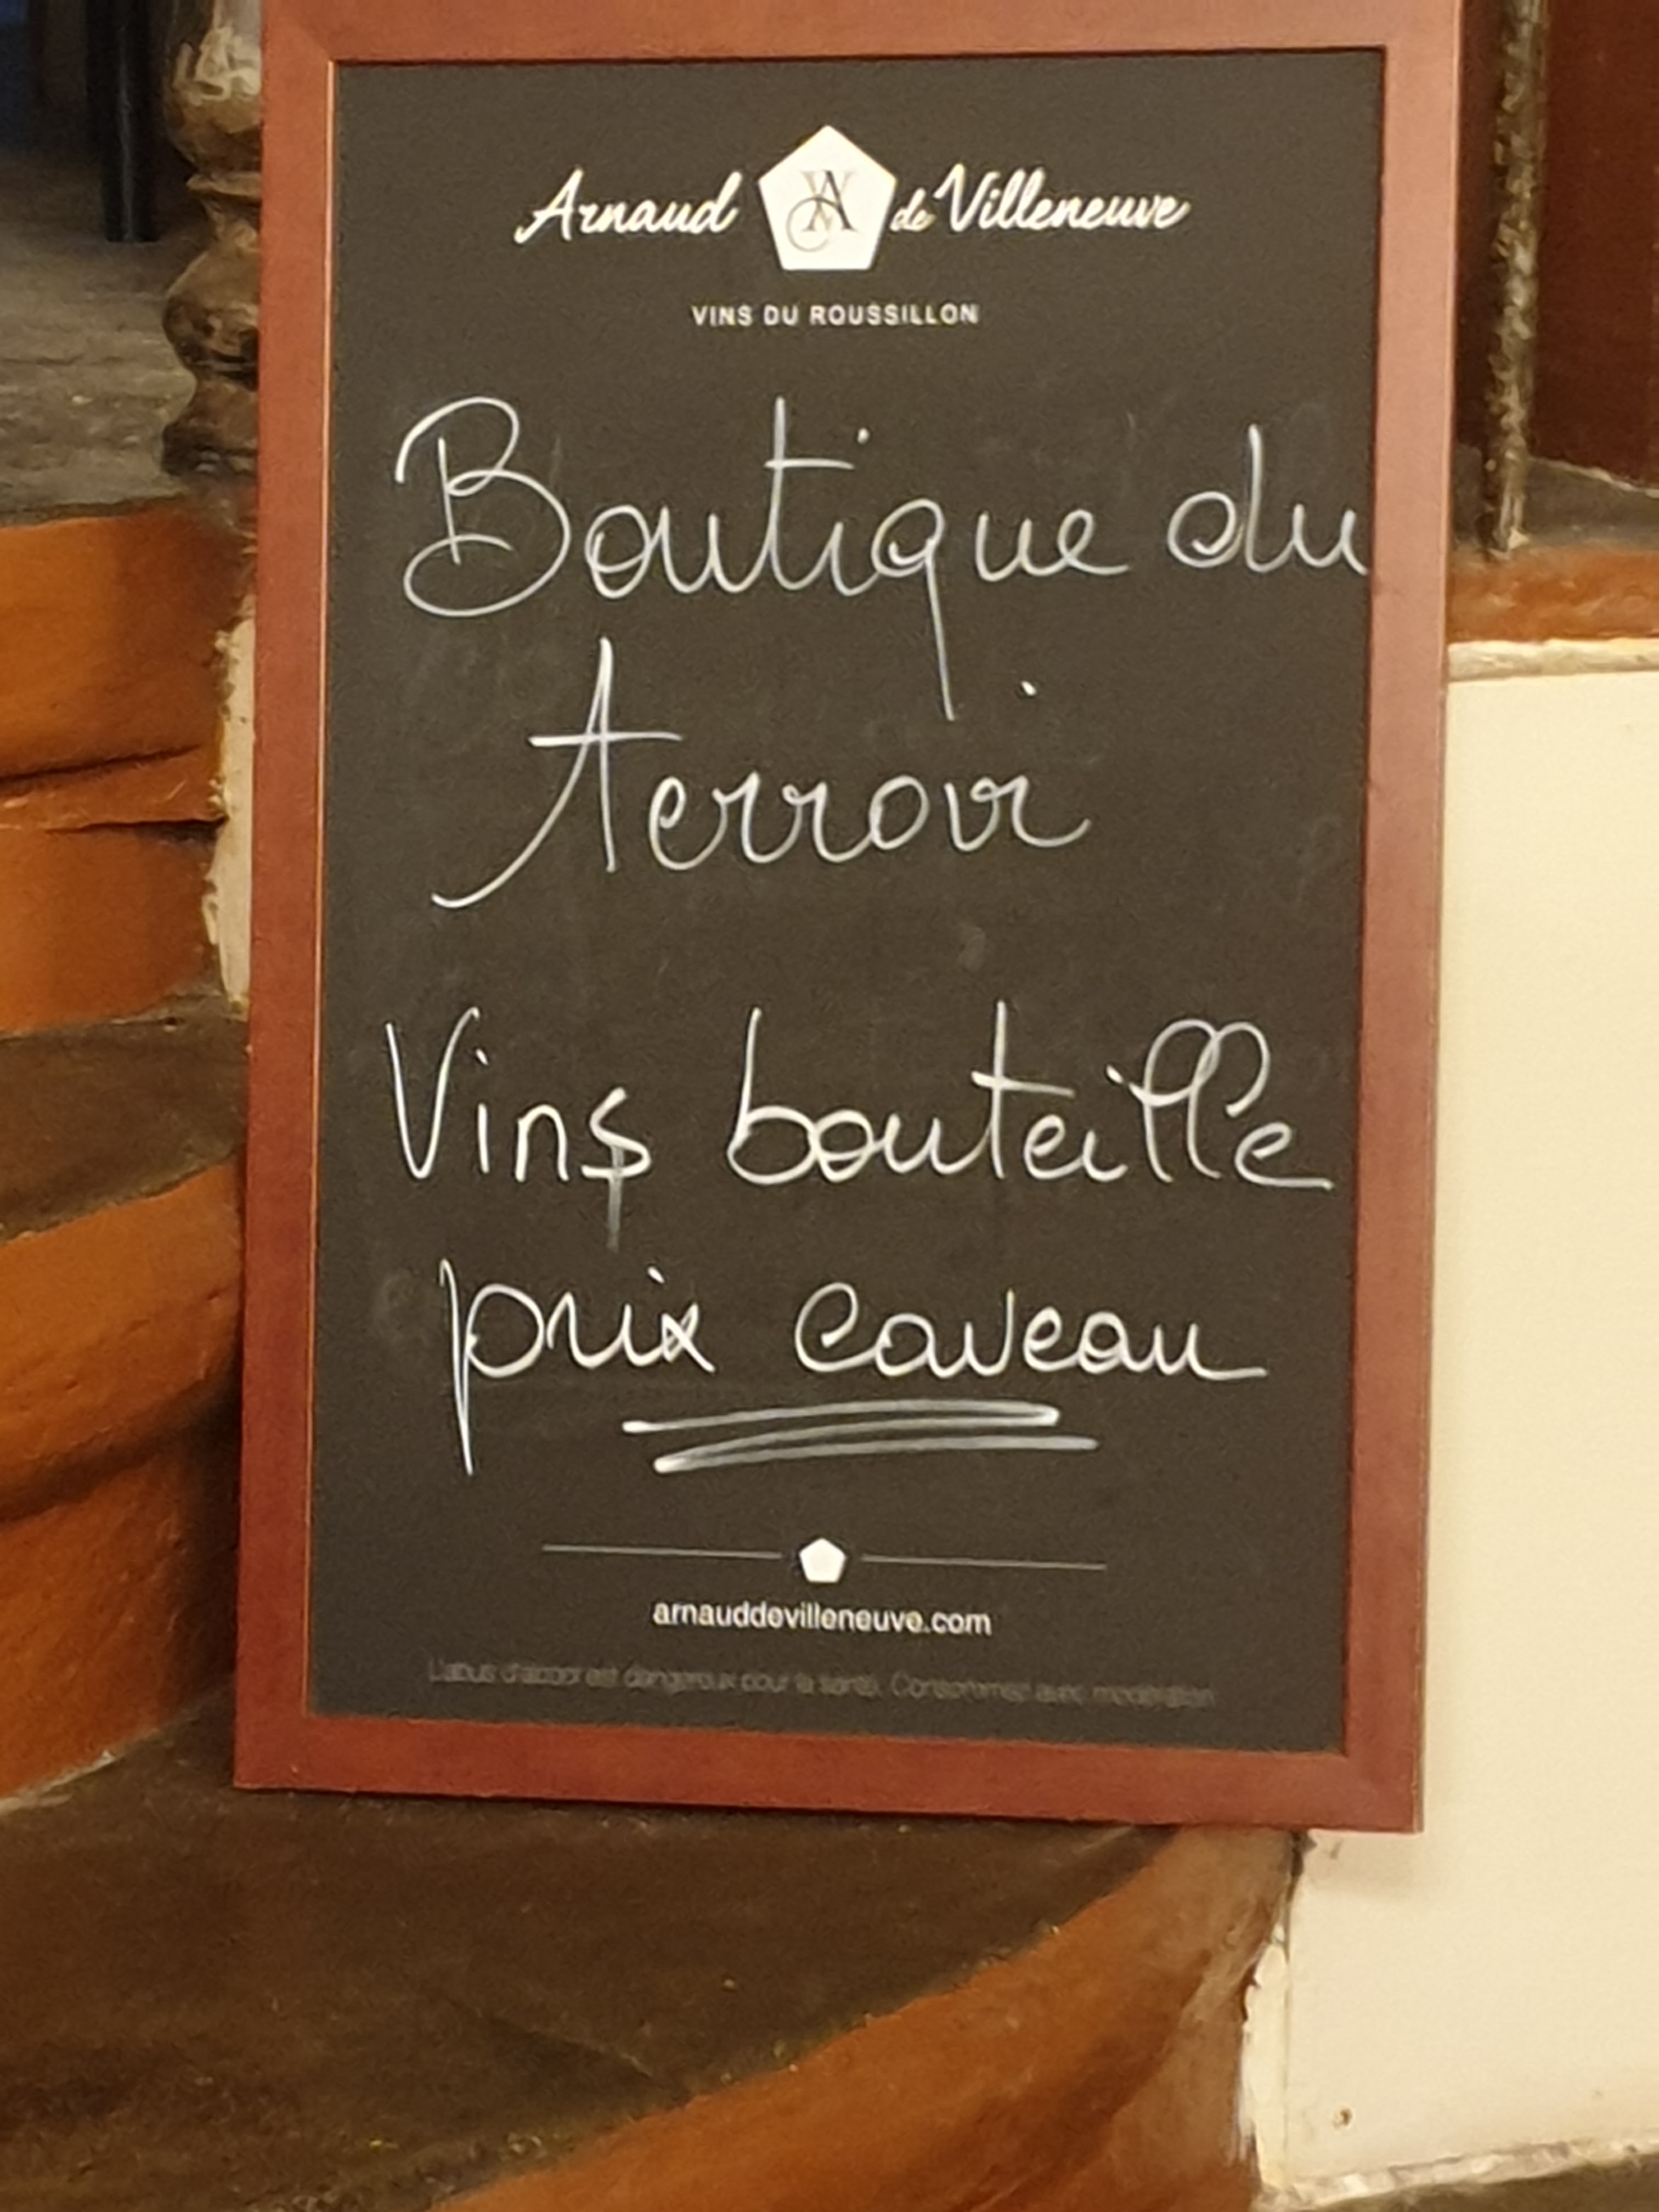 Arnaud de Villeneuve
VINS DU ROUSSILLON
Boutique du
terroir
Vins bouteille
prix caveau
arnauddevilleneuve.com
L'abus d'alcool est dangereux pour la santé. Consommez avec modération